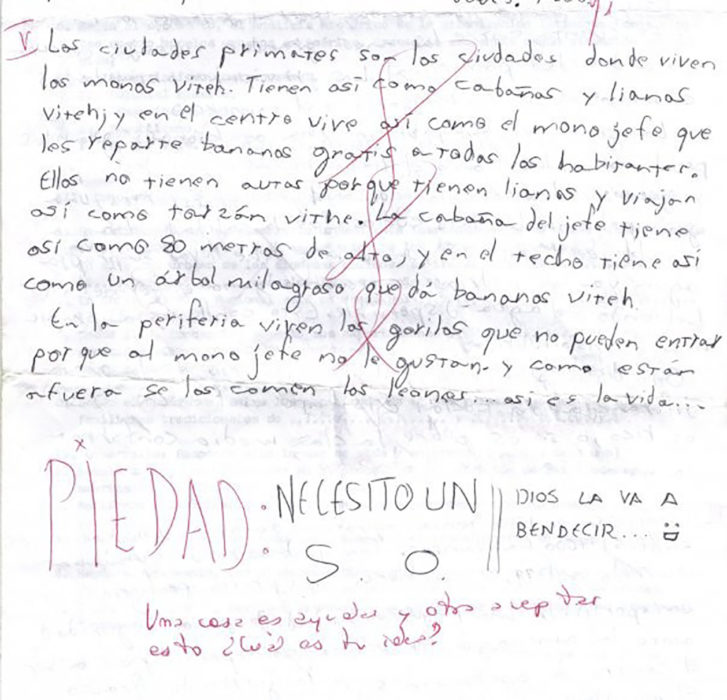 V. Las ciudades primates son las ciudades donde viven
los monos viteh. Tienen así como cabañas y lianas
viteh, y en el centro vive así como el mono jefe que
les reparte bananas gratis a todos los habitantes.
Ellos no tienen autos porque tienen lianas y viajan
así como tarzán vithe. La cabaña del jefe tiene
así como 80 metros de alto, y en el techo tiene así
como un árbol milagroso que dá bananas viteh.
En la periferia viven los gorilas que no pueden entrar
porque al mono jefe no le gustan. y como están
afuera se los comen los leones... así es la vida...
x
PIEDAD: NECESITO UN
S. O.
DIOS LA VA A
BENDECIR...
Una cosa es ayudar y otra aceptar
esto ¿Cuál es tu idea?